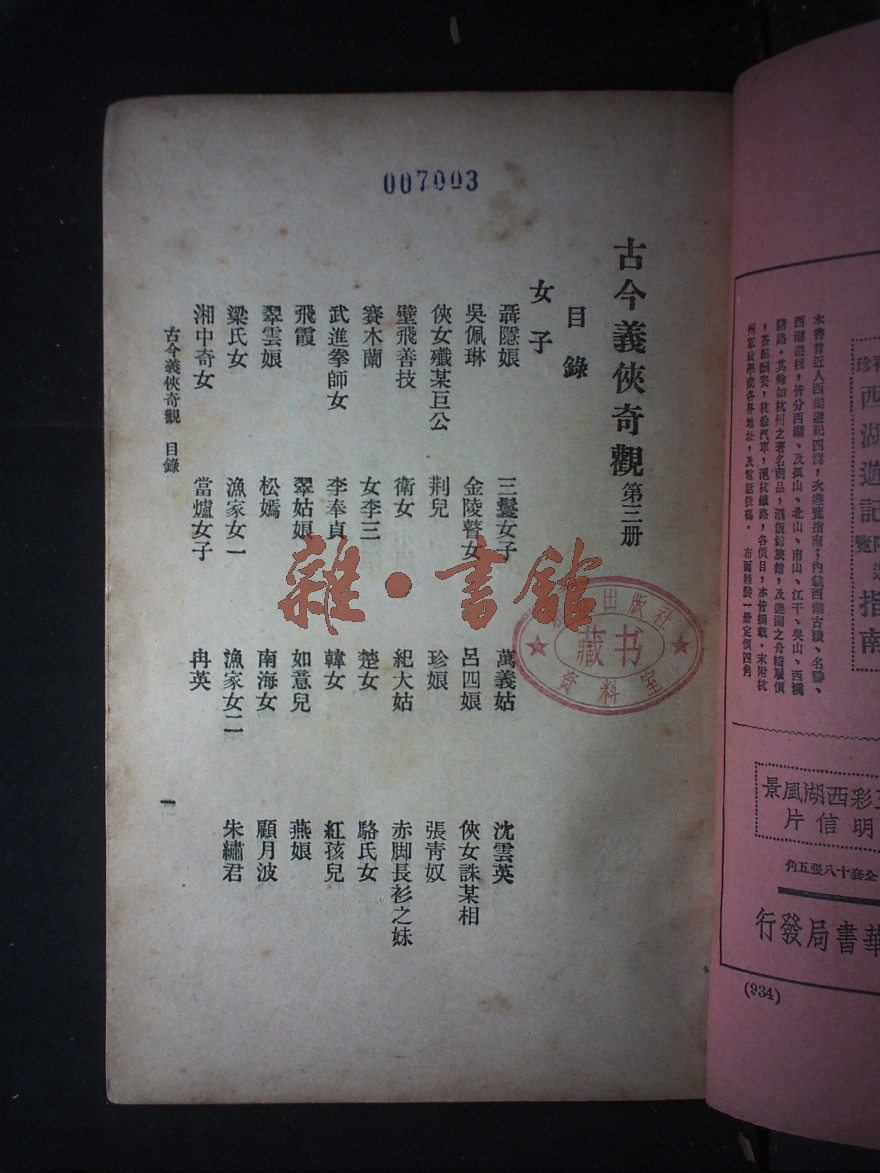 007003
古今義俠奇觀 第三册
目錄
女子
聶隱娘 三鬟女子 萬義姑 沈雲英
吳佩琳 金陵瞽女 呂四娘 俠女誅某相
俠女殲某巨公 荆兒 珍娘 張青奴
壁飛善技 衛女 紀大姑 赤脚長衫之妹
賽木蘭 女李三 楚女 駱氏女
武進拳師女 李奉貞 韓女 紅孩兒
飛霞 翠姑娘 如意兒 燕娘
翠雲娘 松嫣 南海女 顧月波
梁氏女 漁家女一 漁家女二 朱繡君
湘中奇女 當爐女子 冉英
古今義俠奇觀 目錄
一
雜·書館
出版社
藏书
资料室
珍
西湖遊記
覽
指南
本書首近人西湖遊記四篇，次遊覽指南；內載西湖古蹟、名勝、
西湖遊程，皆分西湖、及孤山、北山、南山、江干、吳山、西溪
諸路。其餘如杭州之著名商品，酒飯館旅館，及遊湖之舟轎雇價
，茶點酬資，杭餘汽車，滬杭鐵路，各價目，亦皆摘載。末附杭
州軍政學商各界地址，及電話號碼。 布面精裝一册定價四角
彩西湖風景
明信片
全套十八張五角
華書局發行
(934)